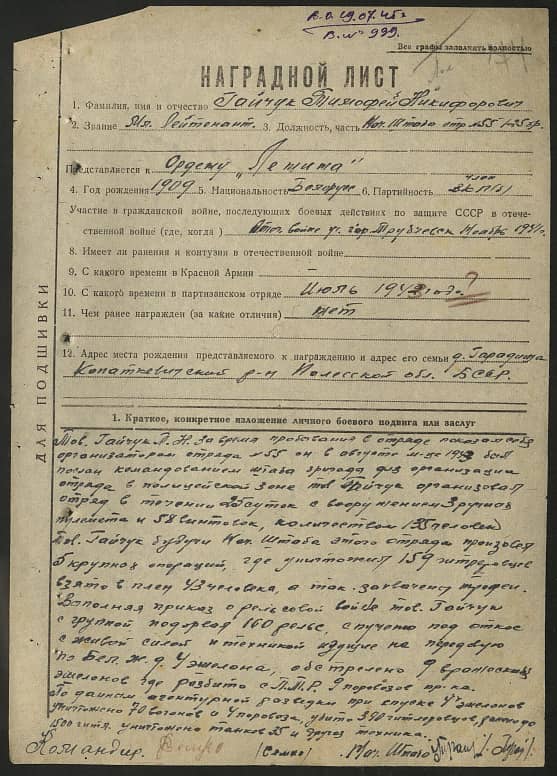 В.О. 29.07.45г
В. № 999.
Все графы заполнять полностью
НАГРАДНОЙ ЛИСТ
1. Фамилия, имя и отчество Гайчук Тимофей Никифорович
2. Звание Мл. Лейтенант. 3. Должность, часть Нач. Штаба отр. №55 125 бр.
Представляется к Ордену „Ленина"
4. Год рождения 1909 5. Национальность Белорус 6. Партийность член ВКП(б)
Участие в гражданской войне, последующих боевых действиях по защите СССР в отече-
ственной войне (где, когда) Отеч. войне гор. Трубчевск Ноябрь 1941г.
8. Имеет ли ранения и контузии в отечественной войне
9. С какого времени в Красной Армии —
10. С какого времени в партизанском отряде Июль 1943 года ?
11. Чем ранее награжден (за какие отличия) нет
12. Адрес места рождения представляемого к награждению и адрес его семьи
Копаткевичский р-н Полесской обл. БССР.
ДЛЯ ПОДШИВКИ
1. Краткое, конкретное изложение личного боевого подвига или заслуг
Тов. Гайчук Т. Н. за время пребывания в отряде показал себя
организатором отряда №55 он в августе м-це 1943 был
послан командованием штаба бригады для организации
отряда в полицейской зоне тов Гайчук организовал
отряд в течении суток с вооружением 3 ручных
пулемета и 58 винтовок, количеством 135 человек
Тов. Гайчук будучи Нач. Штаба этого отряда произвел
крупных операций, где уничтожил 159 гитлеровцев
взято в плен 43 человека, а так. захвачены трофеи.
Выполняя приказ о рельсовой войне тов. Гайчук
с группой подорвал 160 рельс, спущено под откос
с живой силой и техникой идущие на передовую
по Бел. ж.д. 4 эшелона, обстрелено 9 вражеских
эшелонов где разбито с П.Т.Р. 9 паровозов пр-ка.
По данным агентурной разведки при спуске 4х эшелонов
уничтожено 70 вагонов и 4 паровоза, убито 390 гитлеровцев,
гитл. уничтожено танков и друг. техника.
Командир (Семко) Нач. Штаба